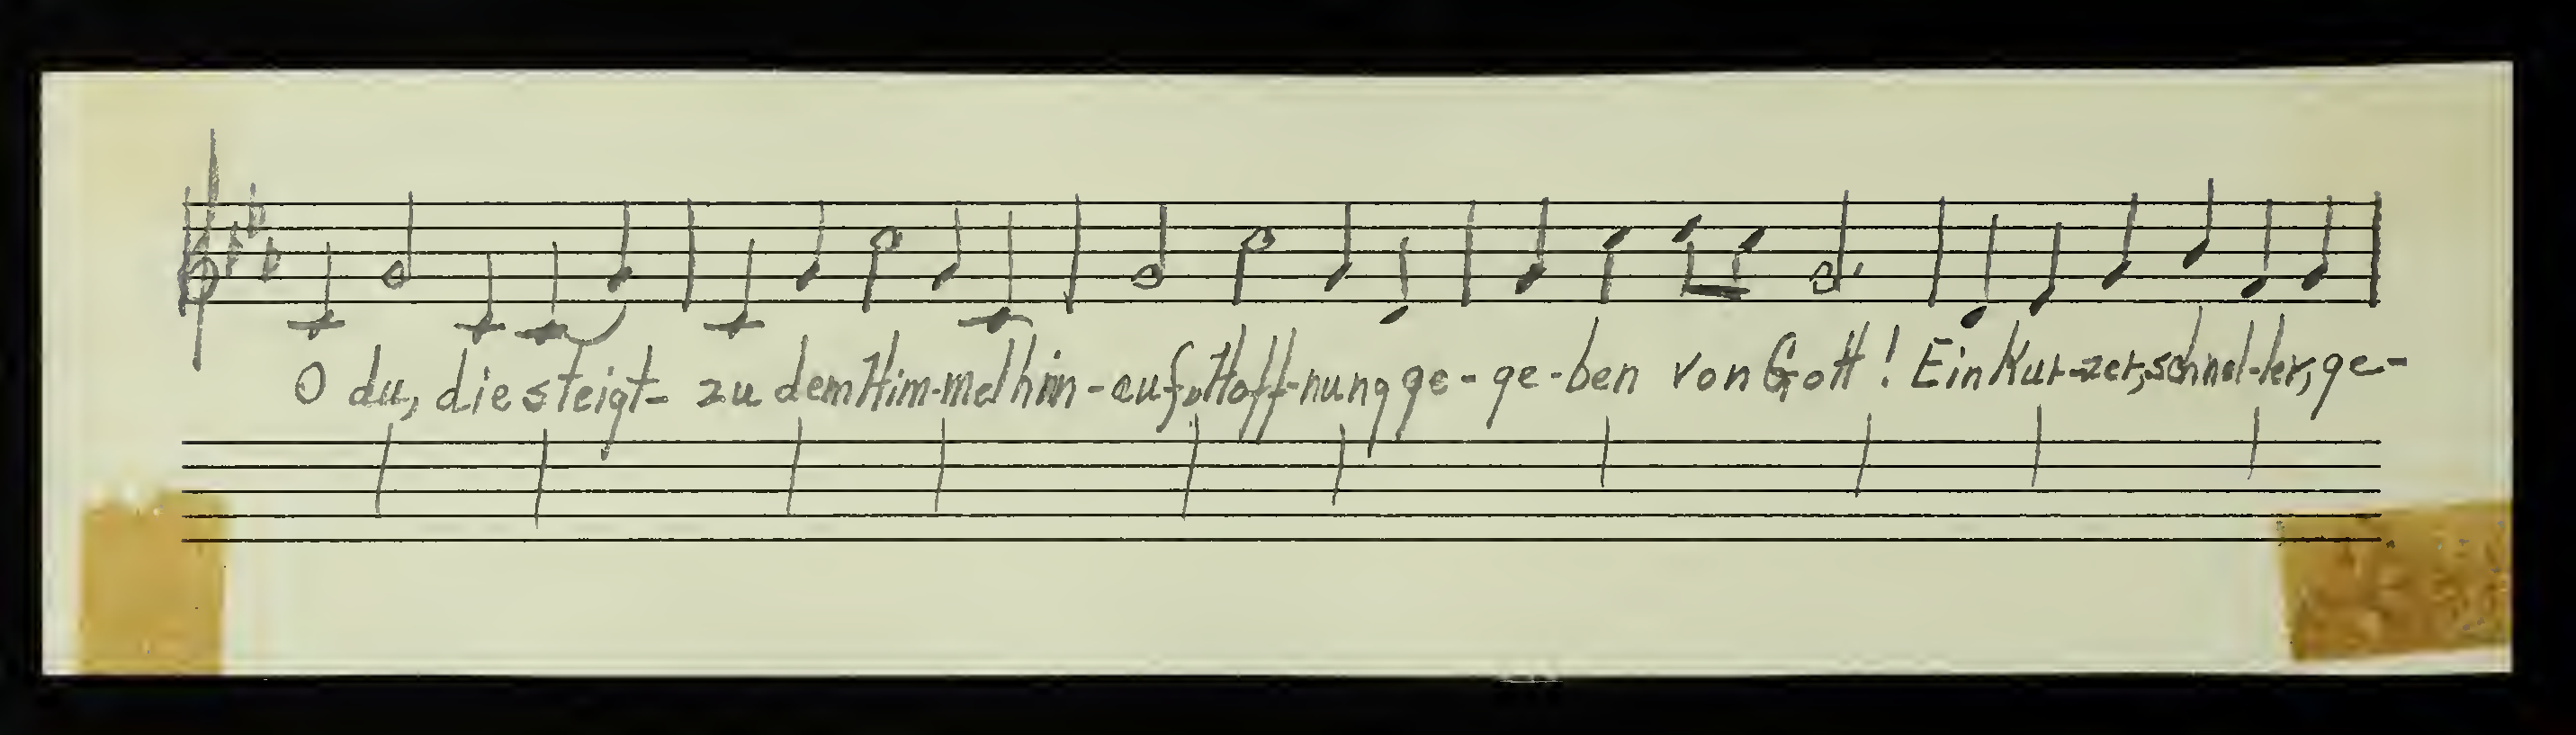 O du, die steigt- zu dem Him-mel hin-auf, Hoff-nung ge-ge-ben von Gott! Ein kur-zer, schnel-ler, ge-